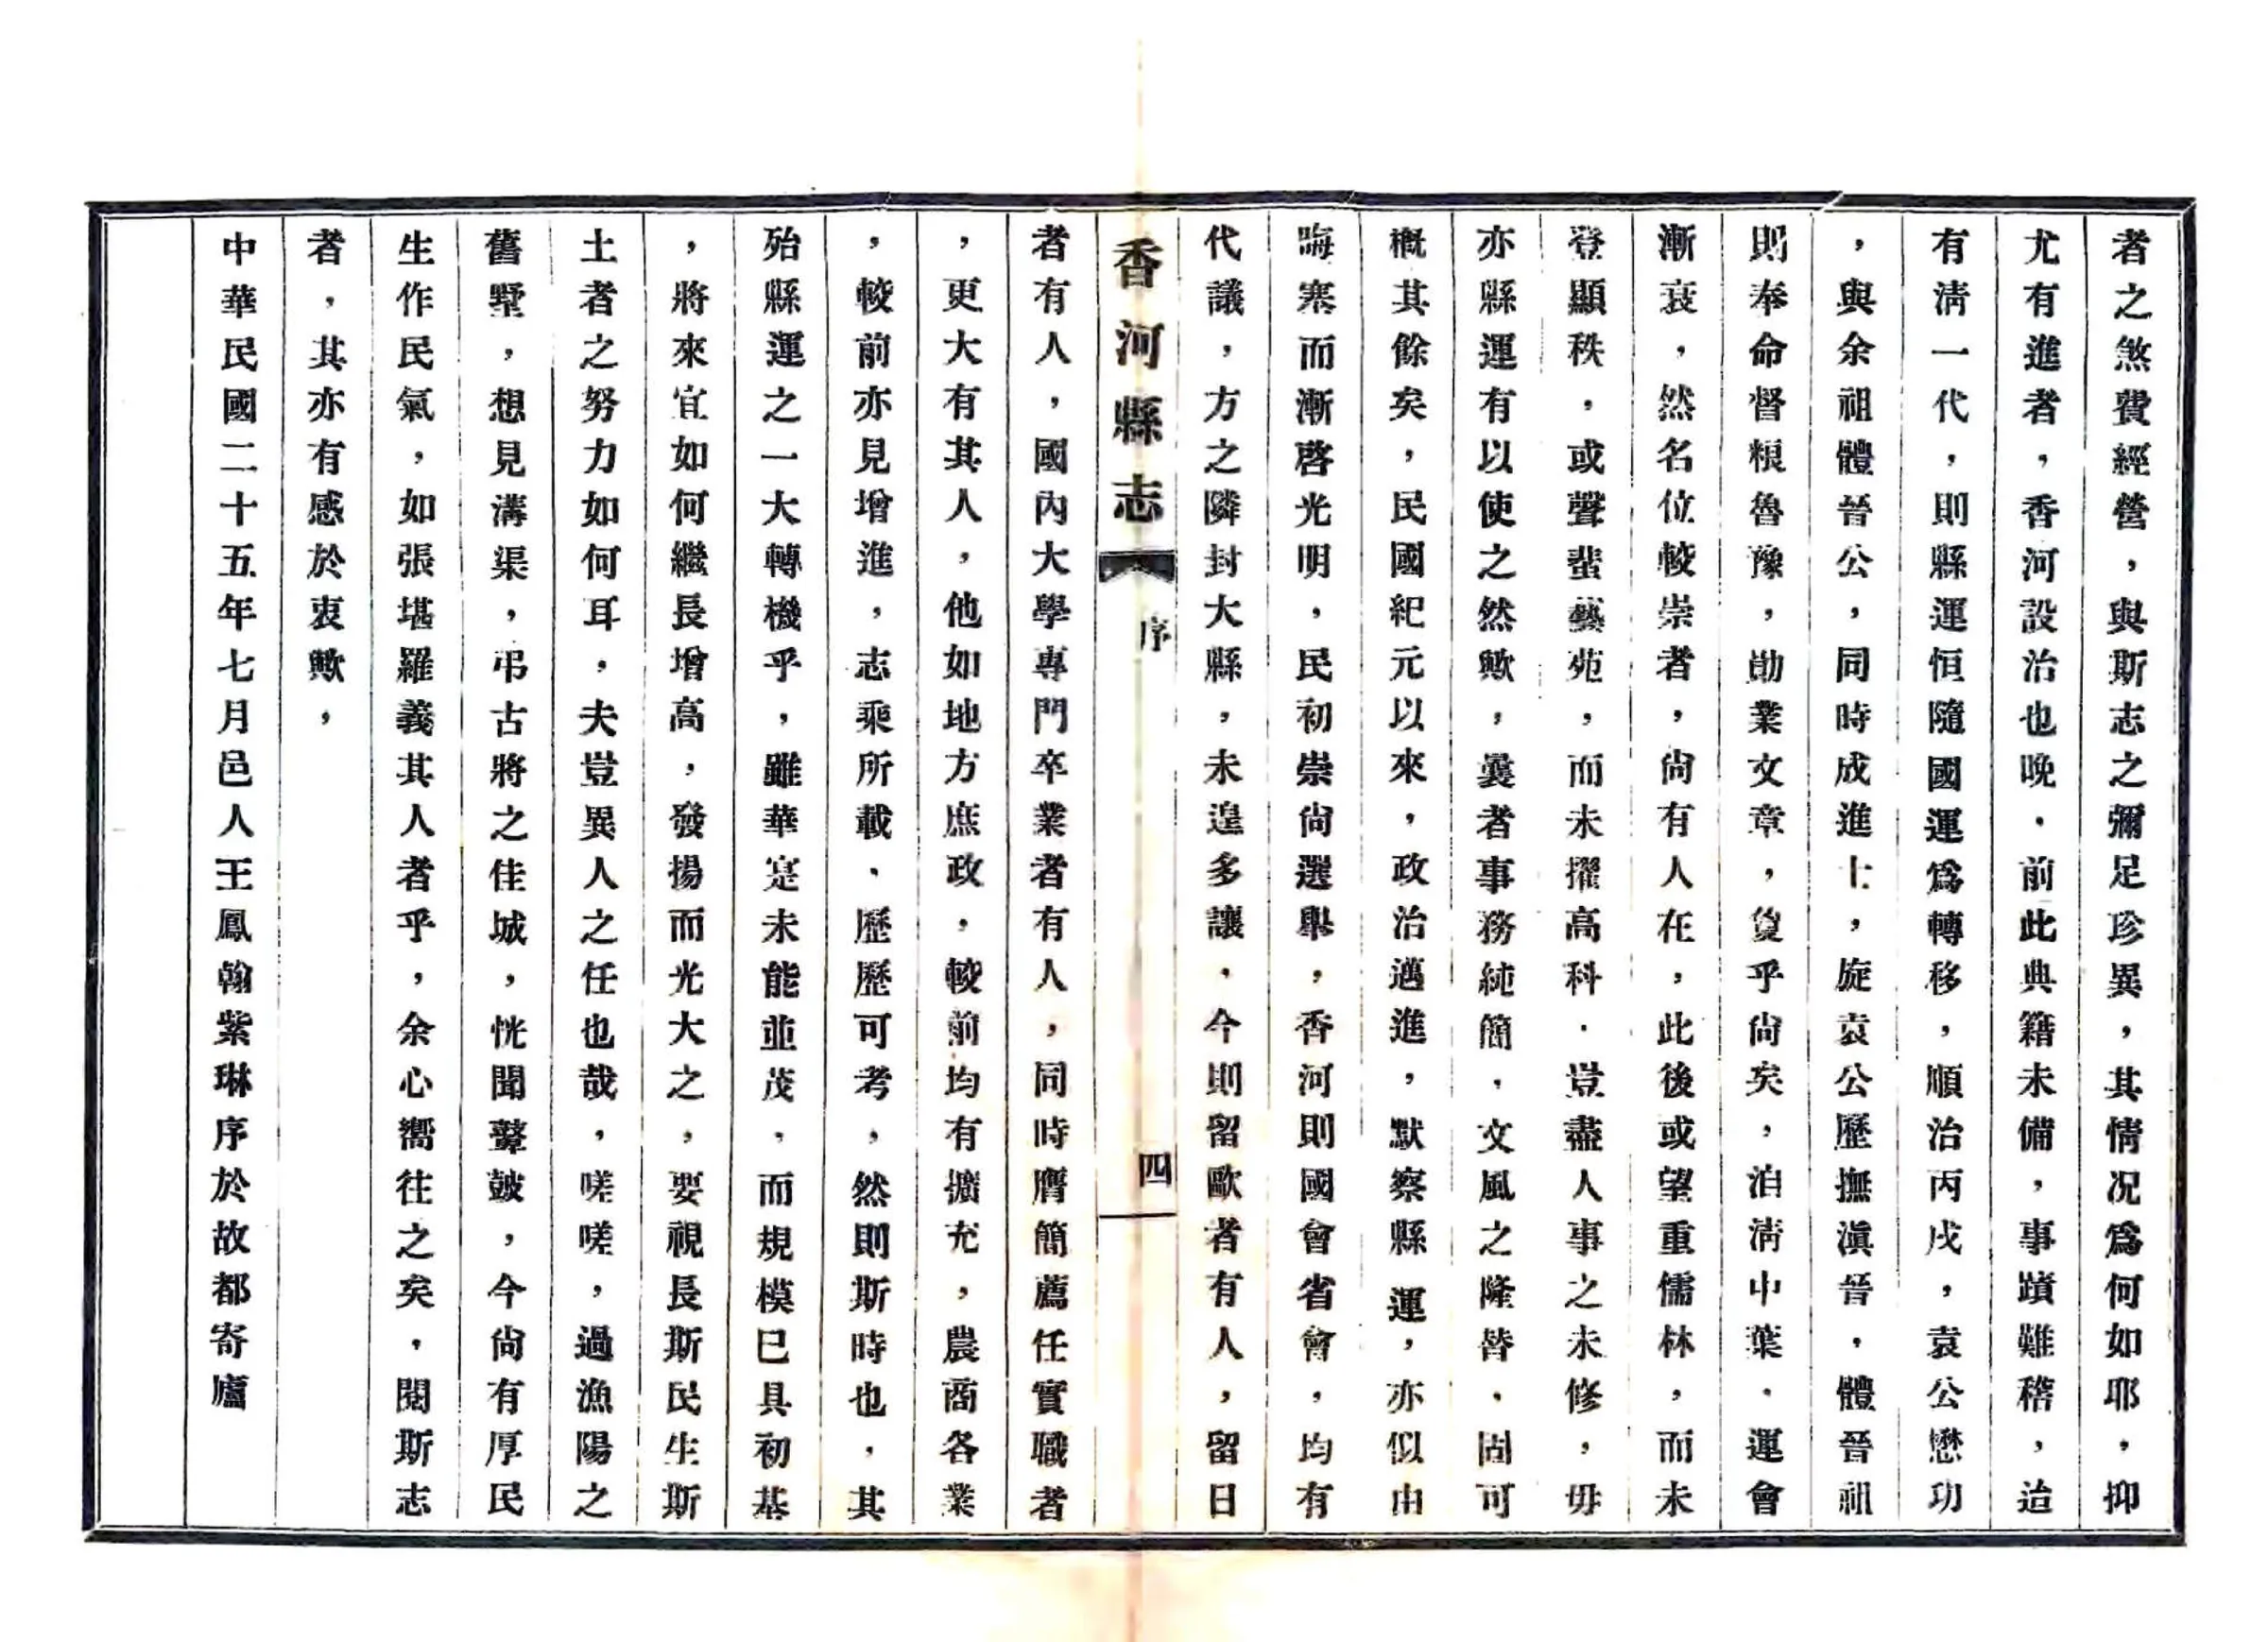 者之煞費經營，與斯志之彌足珍異，其情况爲何如耶，抑
尤有進者，香河設治也晚，前此典籍未備，事蹟難稽，迨
有淸一代，則縣運恒隨國運爲轉移，順治丙戌，袁公懋功
，與余祖體晉公，同時成進士，旋袁公歷撫滇晉，體晉祖
則奉命督粮魯豫，勛業文章，敻乎尙矣，洎淸中葉，運會
漸衰，然名位較崇者，尙有人在，此後或望重儒林，而未
登顯秩，或聲蜚藝苑，而未擢高科，豈盡人事之未修，毋
亦縣運有以使之然歟，曩者事務純簡，文風之隆替，固可
槪其餘矣，民國紀元以來，政治邁進，默察縣運，亦似由
晦塞而漸啓光明，民初崇尙選舉，香河則國會省會，均有
代議，方之隣封大縣，未遑多讓，今則留歐者有人，留日
香河縣志 序 四
者有人，國內大學專門卒業者有人，同時膺簡薦任實職者
，更大有其人，他如地方庶政，較前均有擴充，農商各業
，較前亦見增進，志乘所載，歷歷可考，然則斯時也，其
殆縣運之一大轉機乎，雖華寔未能並茂，而規模已具初基
，將來宜如何繼長增高，發揚而光大之，要視長斯民生斯
土者之努力如何耳，夫豈異人之任也哉，嗟嗟，過漁陽之
舊墅，想見溝渠，弔古將之佳城，恍聞鼙皷，今尙有厚民
生作民氣，如張堪羅義其人者乎，余心嚮往之矣，閱斯志
者，其亦有感於衷歟，
中華民國二十五年七月邑人王鳳翰紫琳序於故都寄廬